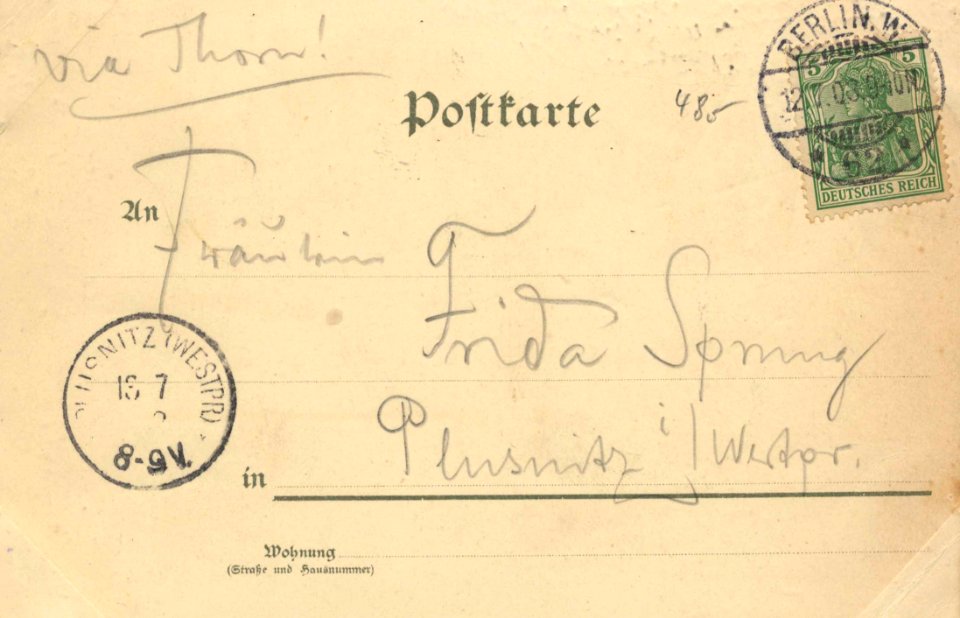 via Thorn!
BERLIN. W.
Postkarte
48,-
5 5
12.7.03.
62
DEUTSCHES REICH
An
Fräulein
Frida Sprung
PLUSNITZ (WESTPR)
7
8-9V.
Plusnitz i/Westpr.
in
Wohnung
(Straße und Hausnummer)